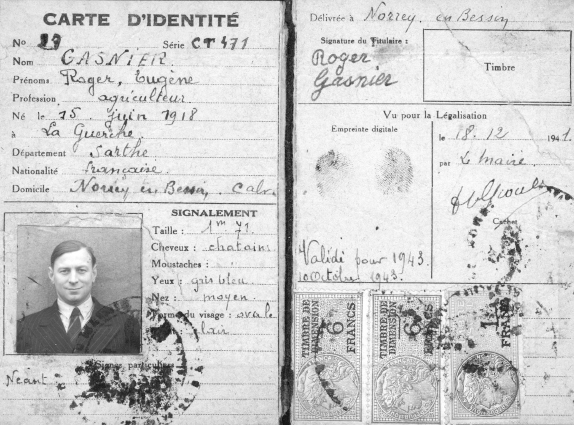 CARTE D'IDENTITÉ
No 29 Série CT 471
Nom GASNIER
Prénoms Roger, Eugène
Profession agriculteur
Né le 15 juin 1918
à La Guerche
Département Sarthe
Nationalité française
Domicile Norrey en Bessin, Calv.
SIGNALEMENT
Taille : 1m 71
Cheveux : chatains
Moustaches :
Yeux : gris bleu
Nez : moyen
Forme du visage : ovale
Signes particuliers
Néant
Délivrée à Norrey en Bessin
Signature du Titulaire :
Roger
Gasnier
Timbre
Vu pour la Légalisation
Empreinte digitale
le 18.12 1941.
par Le Maire
Cachet
Validé pour 1943.
10 Octobre 1943.
TIMBRE DE DIMENSION 6 FRANCS
TIMBRE DE DIMENSION 6 FRANCS
1 FRANCS